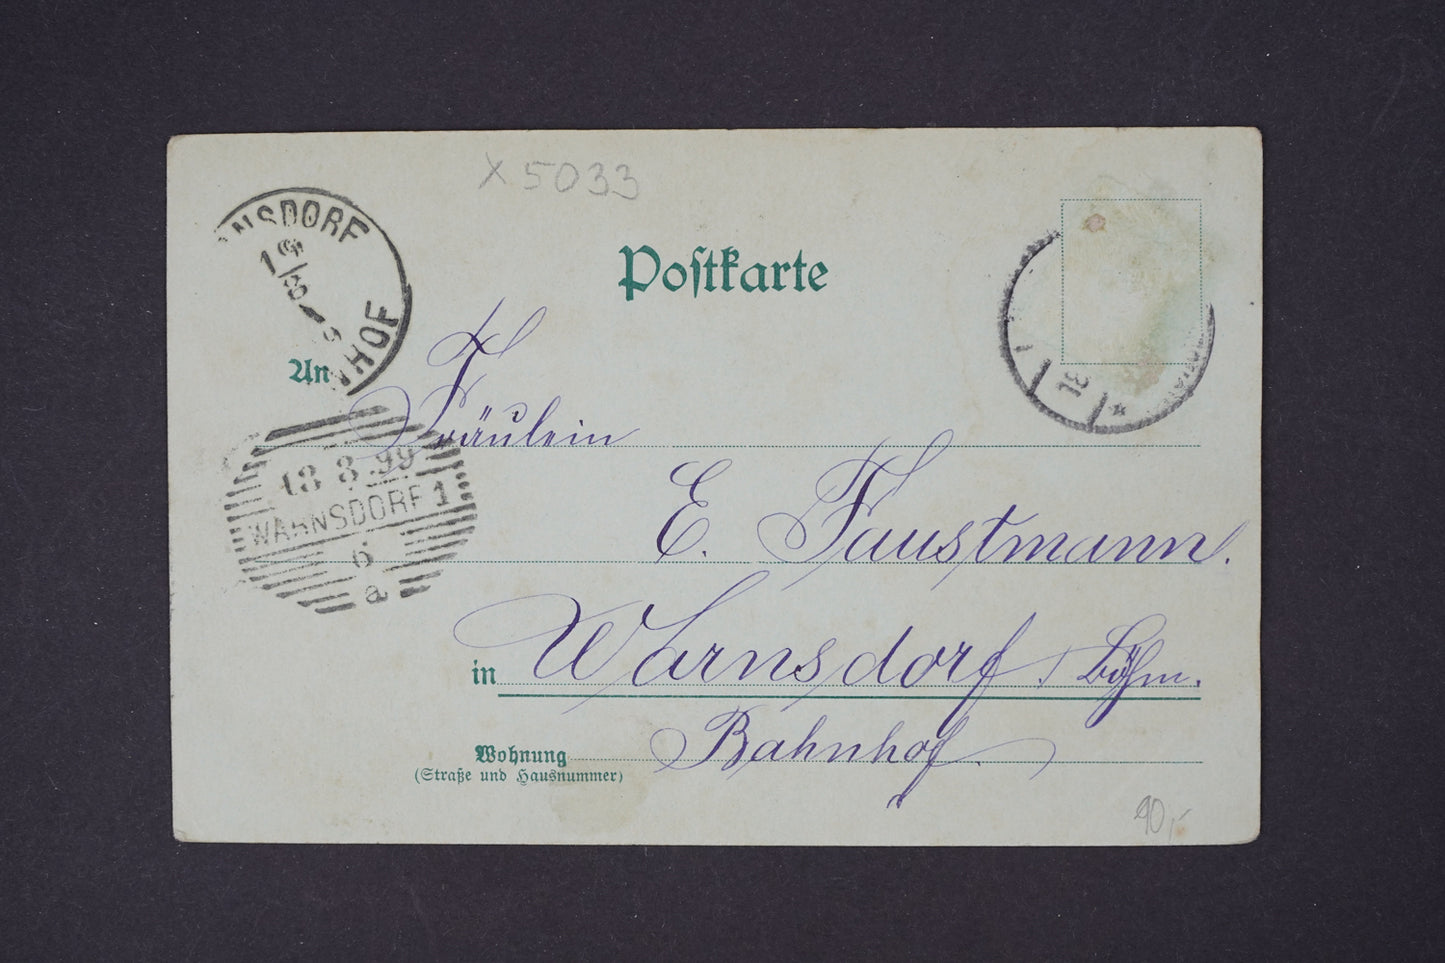 x 5033
NSDORF
HOF
Postkarte
An
Fräulein
18 8 99
WARNSDORF 1
6
a
E. Faustmann.
in Warnsdorf, Böhm.
Wohnung Bahnhof.
(Straße und Hausnummer)
90,-